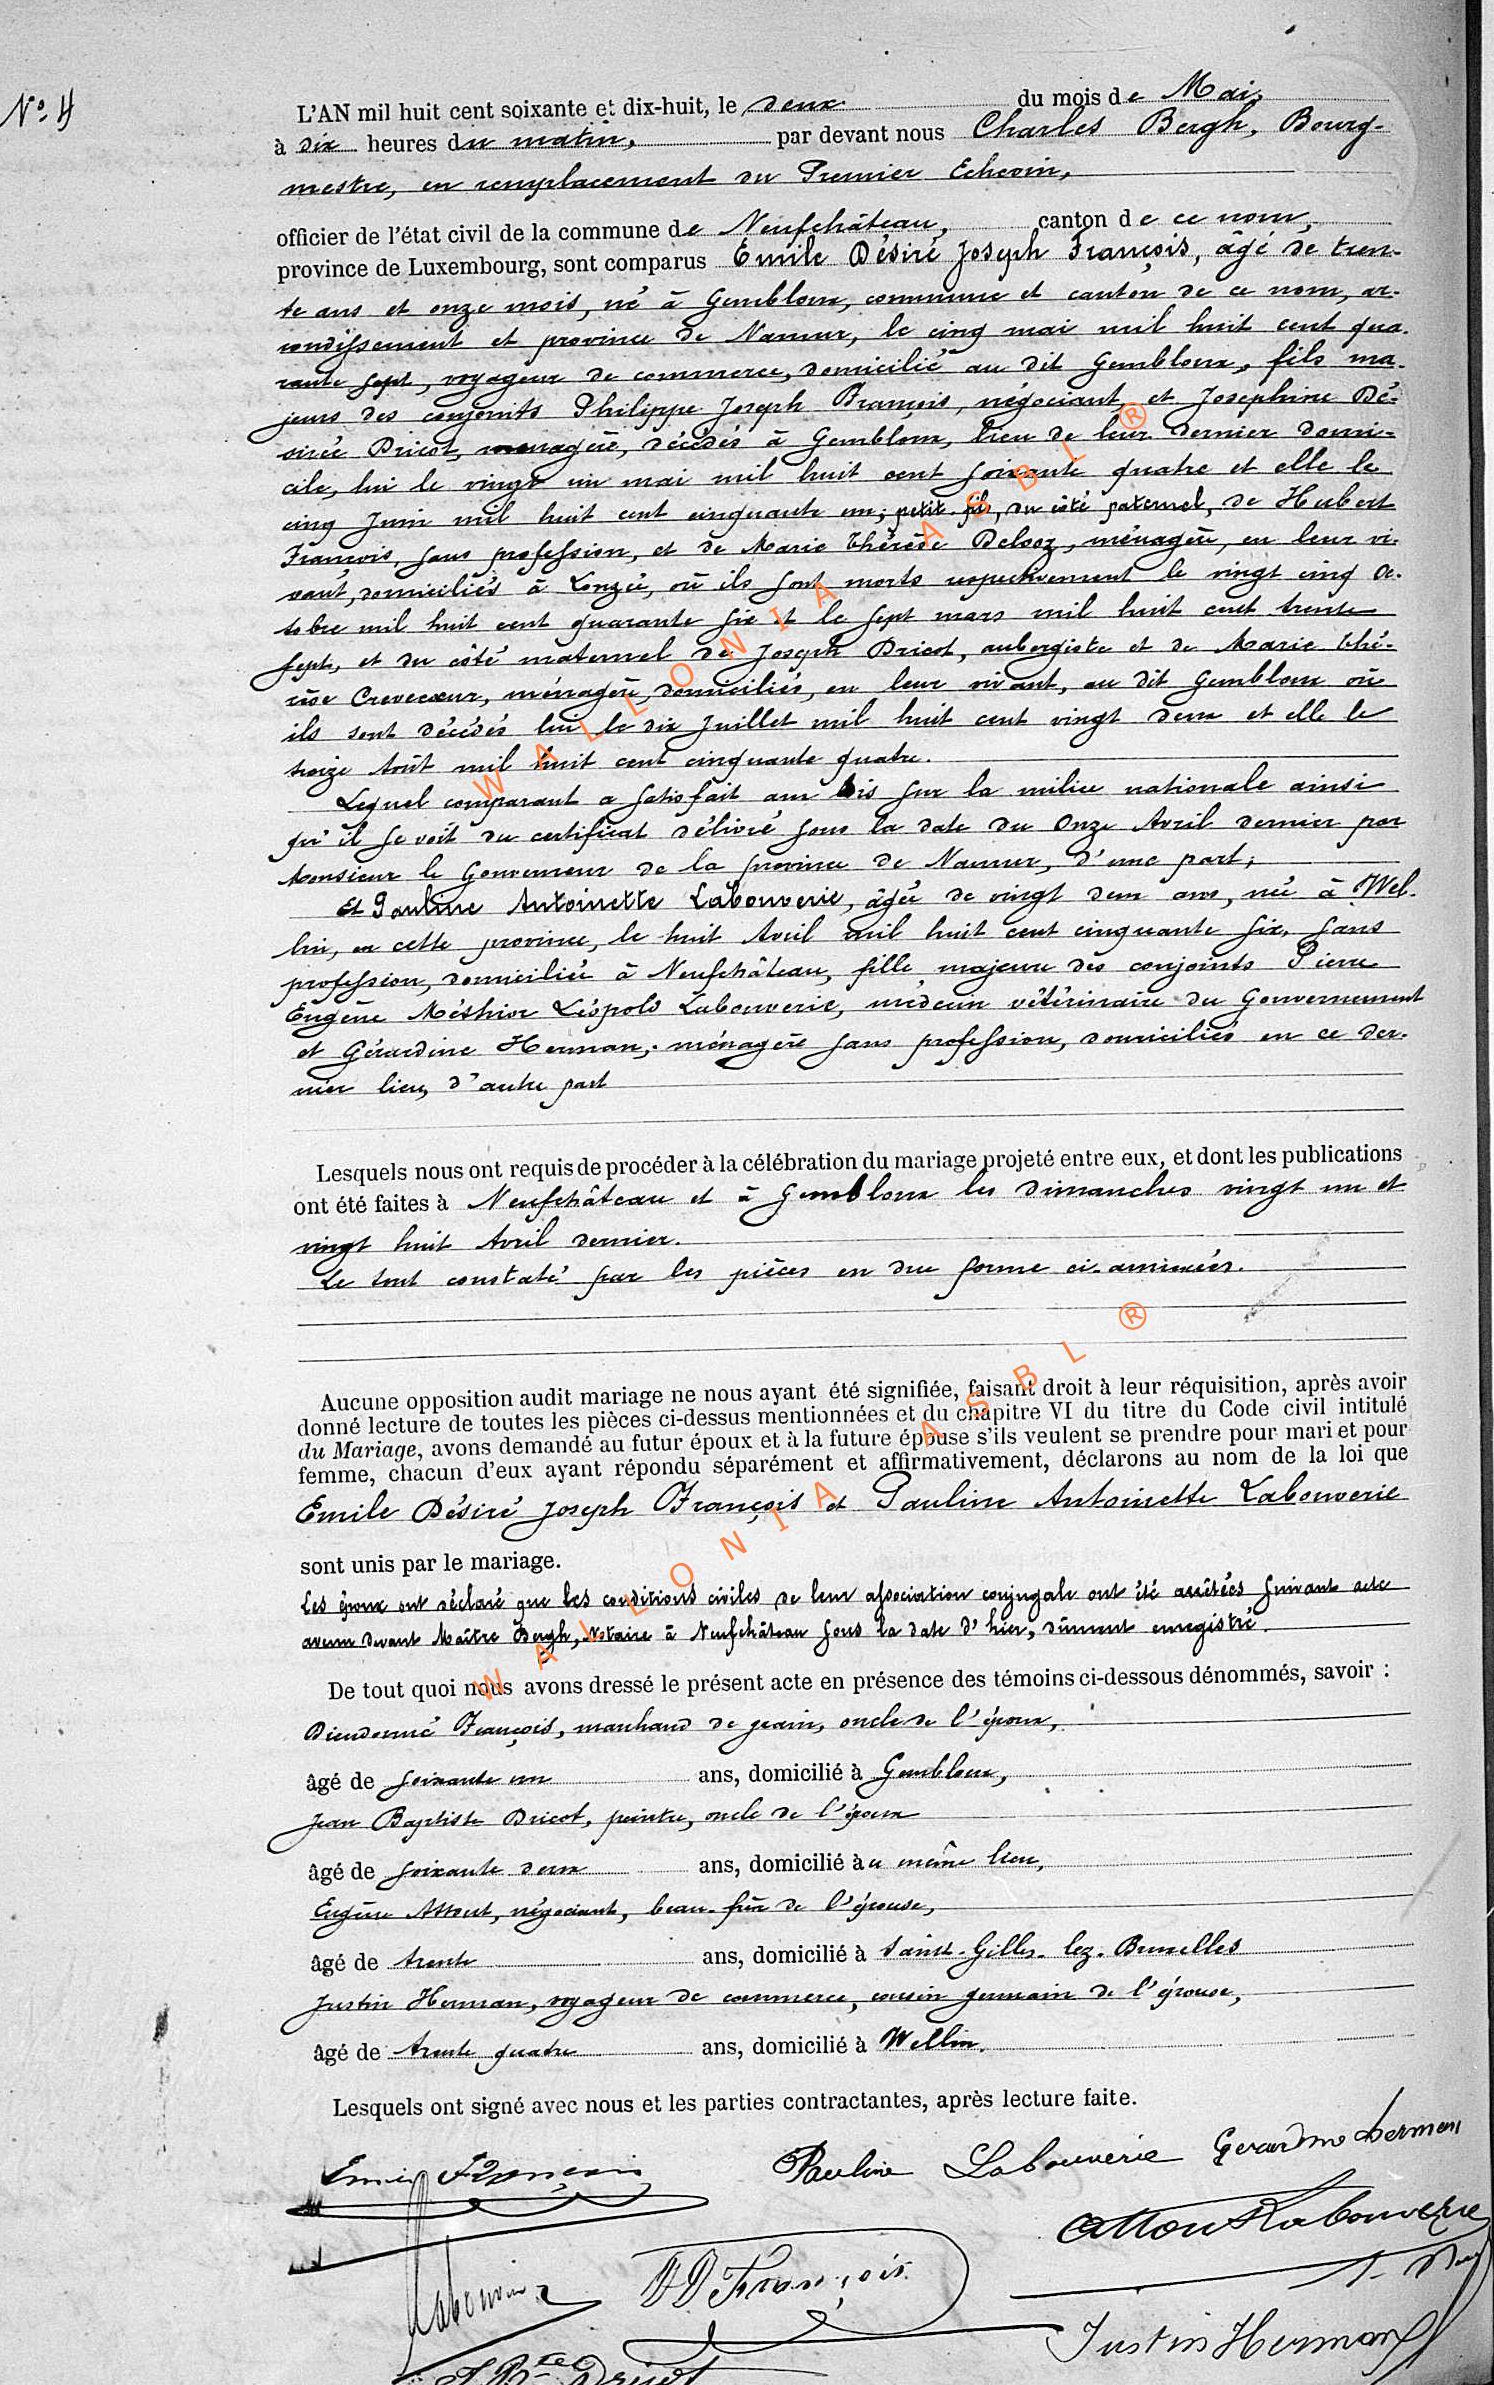 No 4
L'AN mil huit cent soixante et dix-huit, le deux du mois de Mai,
à dix heures du matin, par devant nous Charles Bergh, Bourg-
mestre, en remplacement du Premier Echevin,
officier de l'état civil de la commune de Neufchâteau, canton de ce nom,
province de Luxembourg, sont comparus Emile Désiré Joseph François, âgé de tren-
te ans et onze mois, né à Gembloux, commune et canton de ce nom, ar-
rondissement et province de Namur, le cinq mai mil huit cent qua-
rante sept, voyageur de commerce, domicilié au dit Gembloux, fils ma-
jeur des conjoints Philippe Joseph François, négociant, et Josephine Dé-
sirée Dricot, menagère, décédés à Gembloux, lieu de leur dernier domi-
cile, lui le vingt un mai mil huit cent soixante quatre et elle le
cinq Juin mil huit cent cinquante un; petit fils, du côté paternel, de Hubert
François, sans profession, et de Marie Thérèse Delooz, ménagère, en leur vi-
vant, domiciliés à Lonzée, où ils sont morts respectivement le vingt cinq Oc-
tobre mil huit cent quarante six et le sept mars mil huit cent trente
sept, et du côté maternel de Joseph Dricot, aubergiste et de Marie Thé-
rèse Crevecœur, ménagère, domiciliés, en leur vivant, au dit Gembloux où
ils sont décédés lui le dix Juillet mil huit cent vingt deux et elle le
treize Août mil huit cent cinquante quatre.
Lequel comparant a satisfait aux lois sur la milice nationale ainsi
qu'il se voit du certificat délivré sous la date du Onze Avril dernier par
Monsieur le Gouverneur de la province de Namur, d'une part;
Et Pauline Antoinette Labouverie, âgée de vingt deux ans, née à Wel-
lin, en cette province, le huit Avril mil huit cent cinquante six, sans
profession, domiciliée à Neufchâteau, fille majeure des conjoints Pierre
Eugène Léopold Labouverie, médecin vétérinaire du Gouvernement
et Gérardine Herman, ménagère sans profession, domiciliés en ce der-
nier lieu, d'autre part
Lesquels nous ont requis de procéder à la célébration du mariage projeté entre eux, et dont les publications
ont été faites à Neufchâteau et à Gembloux les dimanches vingt un et
vingt huit Avril dernier.
Le tout constaté par les pièces en due forme ci-annexées.
Aucune opposition audit mariage ne nous ayant été signifiée, faisant droit à leur réquisition, après avoir
donné lecture de toutes les pièces ci-dessus mentionnées et du chapitre VI du titre du Code civil intitulé
du Mariage, avons demandé au futur époux et à la future épouse s'ils veulent se prendre pour mari et pour
femme, chacun d'eux ayant répondu séparément et affirmativement, déclarons au nom de la loi que
Emile Désiré Joseph François et Pauline Antoinette Labouverie
sont unis par le mariage.
Les époux ont déclaré que les conditions civiles de leur association conjugale ont été arrêtées suivant acte
avenu devant Maître Bergh, Notaire à Neufchâteau sous la date d'hier, dûment enregistré.
De tout quoi nous avons dressé le présent acte en présence des témoins ci-dessous dénommés, savoir :
Dieudonné François, marchand de grain, oncle de l'époux,
âgé de soixante un ans, domicilié à Gembloux,
Jean Baptiste Dricot, peintre, oncle de l'époux
âgé de soixante deux ans, domicilié au même lieu,
Eugène Attout, négociant, beau-frère de l'épouse,
âgé de trente ans, domicilié à Saint-Gilles-lez-Bruxelles
Justin Herman, voyageur de commerce, cousin germain de l'épouse,
âgé de trente quatre ans, domicilié à Wellin.
Lesquels ont signé avec nous et les parties contractantes, après lecture faite.
Emile François Pauline Labouverie Gerardine Herman
Attout Labouverie
Labouverie DD François
Justin Herman
J Bte Dricot
WALLONIA ASBL ®
WALLONIA ASBL ®